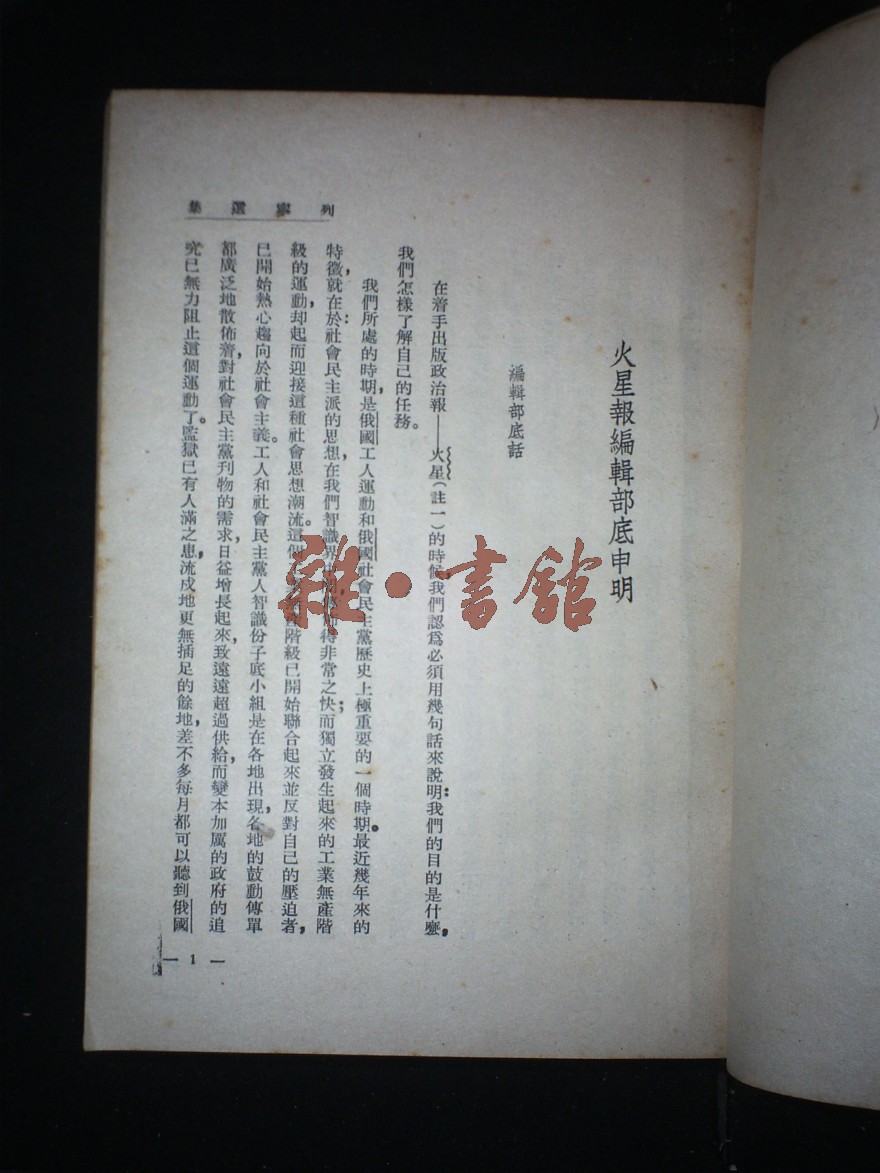 列寧選集
火星報編輯部底申明
編輯部底話
在着手出版政治報——火星(註一)的時候,我們認爲必須用幾句話來說明:我們的目的是什麼,
我們怎樣了解自己的任務。
我們所處的時期,是俄國工人運動和俄國社會民主黨歷史上極重要的一個時期。最近幾年來的
特徵,就在於:社會民主派的思想,在我們智識界得非常之快;而獨立發生起來的工業無產階
級的運動,却起而迎接這種社會思想潮流。這個階級已開始聯合起來並反對自己的壓迫者,
已開始熱心趨向於社會主義。工人和社會民主黨人智識份子底小組是在各地出現,各地的鼓動傳單
都廣泛地散佈着,對社會民主黨刊物的需求日益增長起來,致遠遠超過供給,而變本加厲的政府的追
究已無力阻止這個運動了。監獄已有人滿之患,流戍地更無插足的餘地,差不多每月都可以聽到俄國
— 1 —
雜·書舘